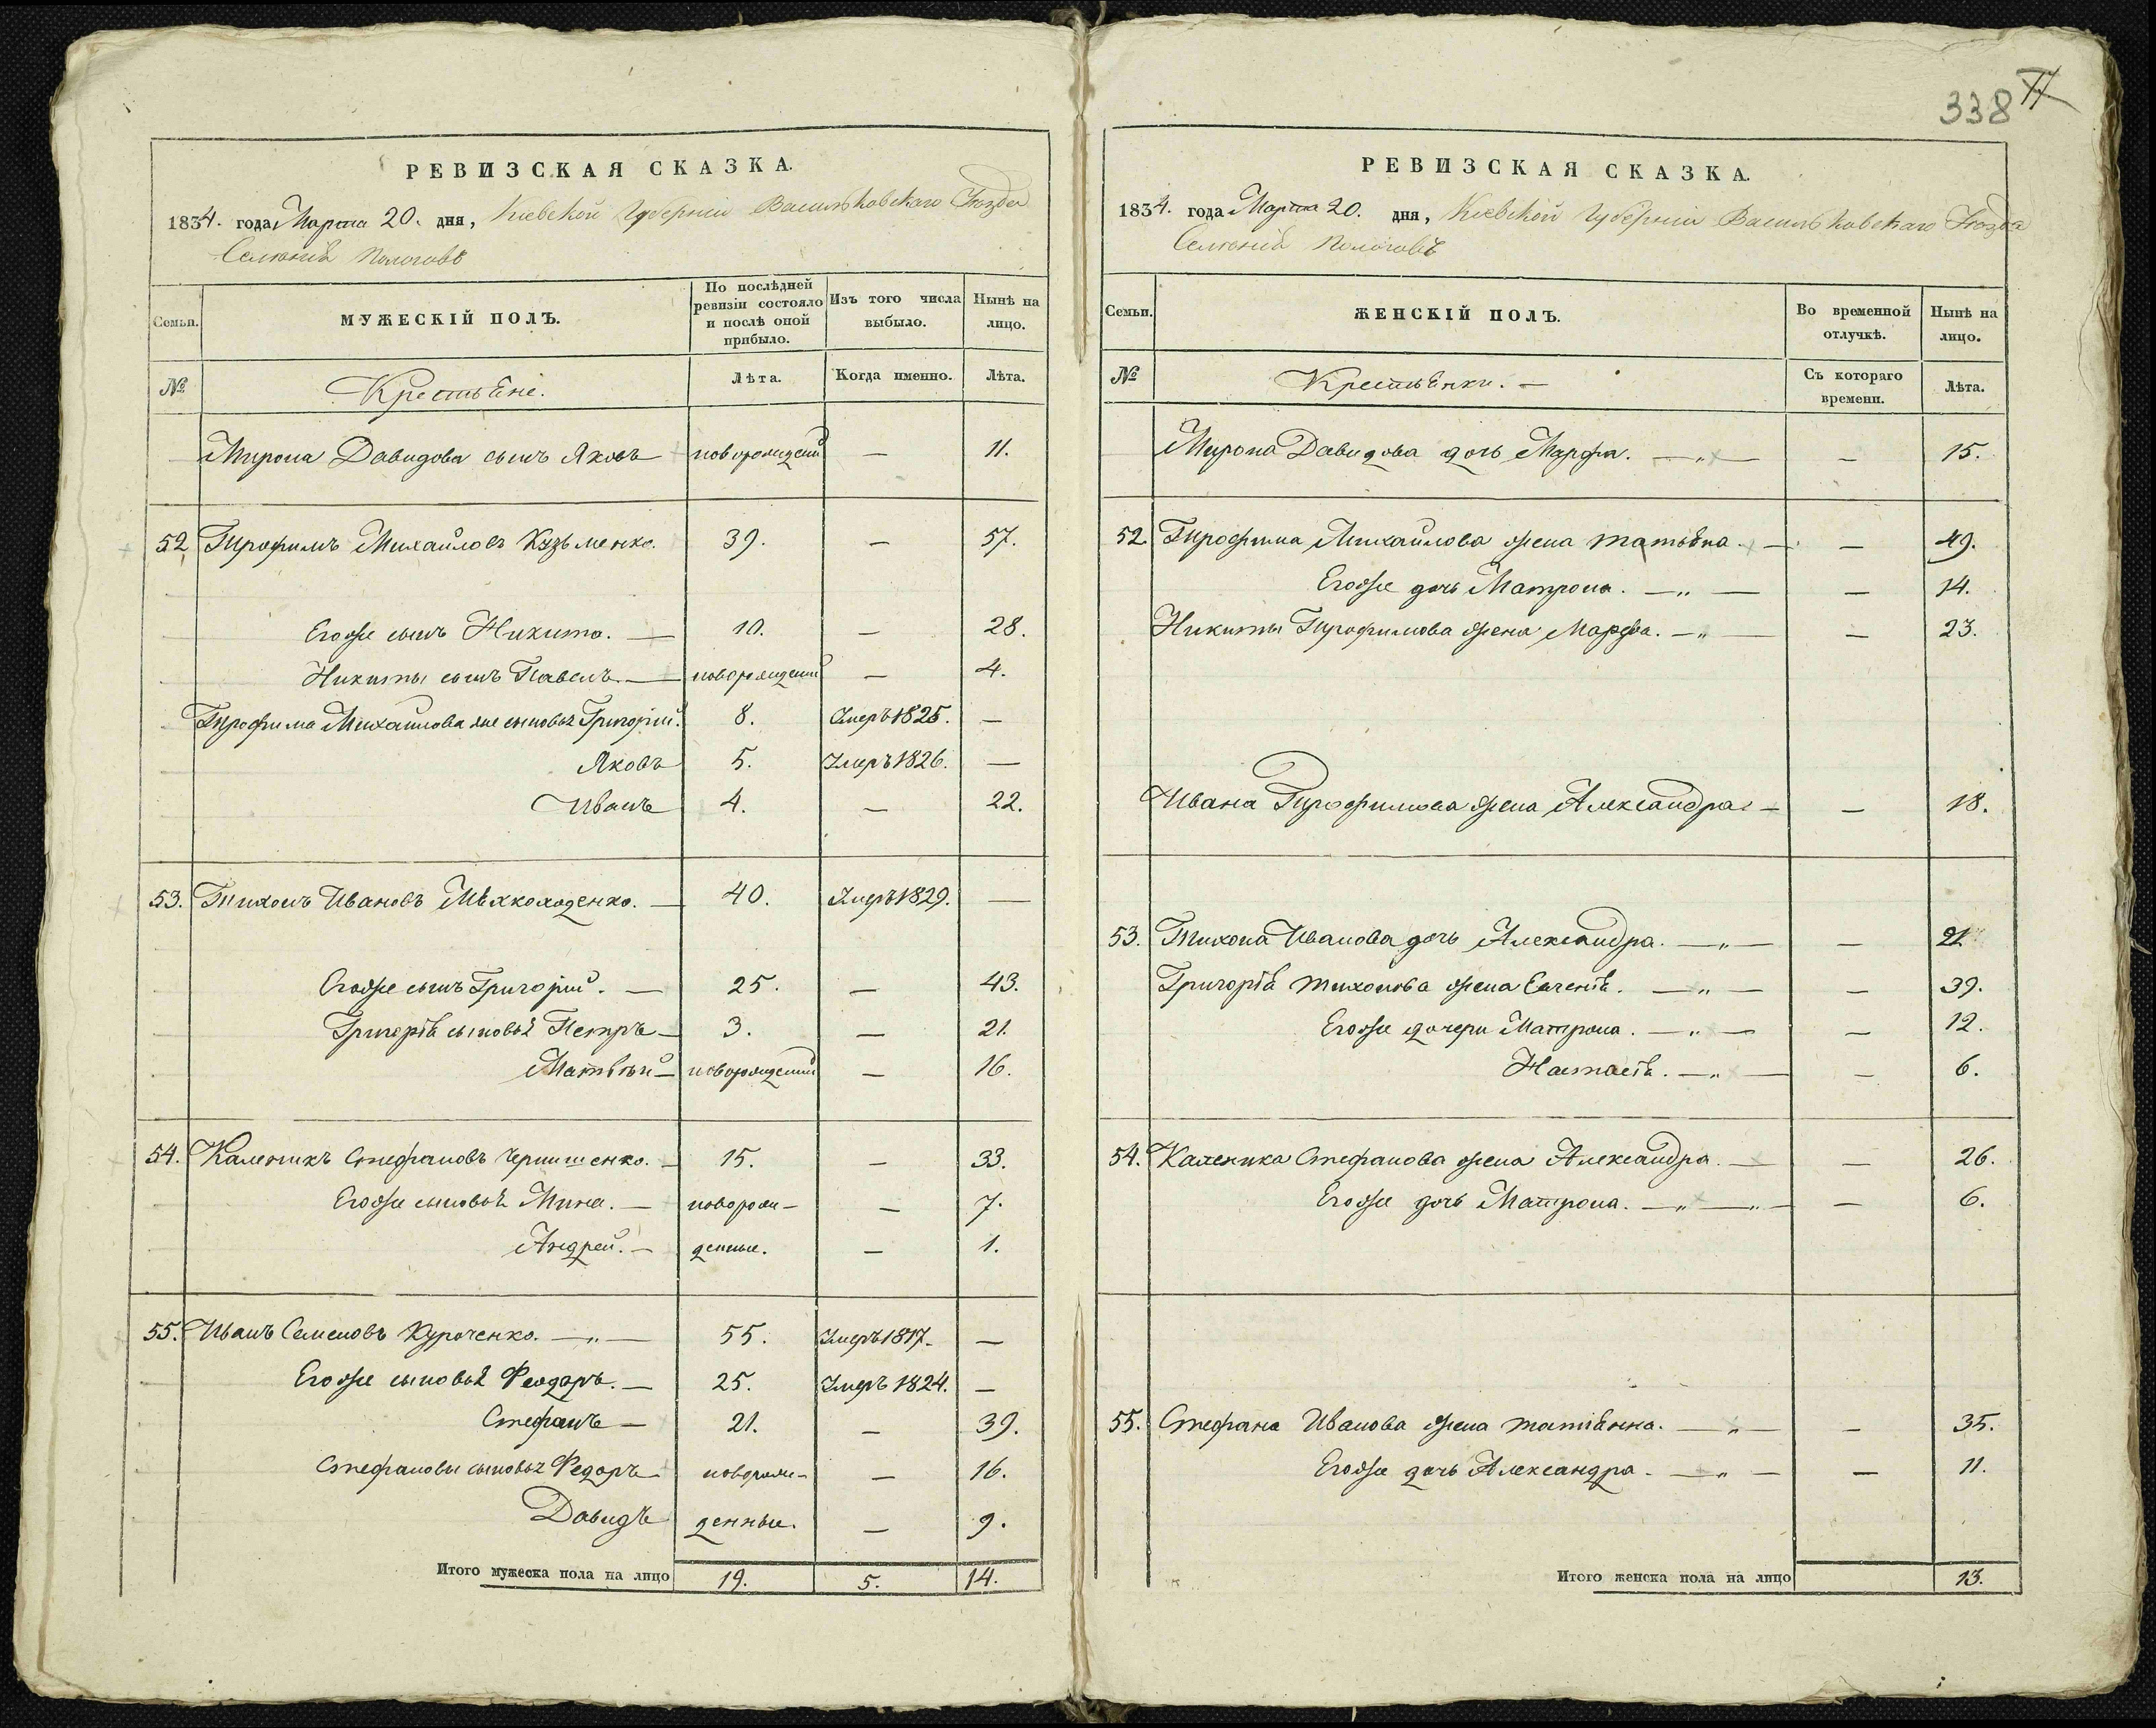 338 77
РЕВИЗСКАЯ СКАЗКА.
1834. года Марта 20. дня, Кіевской Губерніи Васильковскаго Уѣзда
Селенія Пологовъ
Семьи. МУЖЕСКІЙ ПОЛЪ. По послѣдней ревизіи состояло и послѣ оной прибыло. Изъ того числа выбыло. Нынѣ на лицо.
№ Крестьяне. Лѣта. Когда именно. Лѣта.
Мирона Давидова сынъ Яковъ новорожденій — 11.
52 Трофимъ Михайловъ Кузьменко. 39. — 57.
Егоже сынъ Никита. — 10. — 28.
Никиты сынъ Павелъ — новорожденій — 4.
Трофима Михайлова же сыновья Григорій. 8. Умеръ 1825. —
Яковъ 5. Умеръ 1826. —
Иванъ 4. — 22.
53. Тихонъ Ивановъ Мѣхколоденко. — 40. Умеръ 1829. —
Егоже сынъ Григорій. — 25. — 43.
Григорія сыновья Петръ — 3. — 21.
Матвѣй — новорожденій — 16.
54. Каленикъ Стефановъ Чернишенко. — 15. — 33.
Егоже сыновья Мина. — новорож- — 7.
Андрей. — денные. — 1.
55. Иванъ Семеновъ Курченко. — „ — 55. Умеръ 1817. —
Егоже сыновья Феодоръ. — 25. Умеръ 1824. —
Стефанъ — 21. — 39.
Стефановы сыновья Федоръ новорож- — 16.
Давидъ денные. — 9.
Итого мужеска пола на лицо 19. 5. 14.
РЕВИЗСКАЯ СКАЗКА.
1834. года Марта 20. дня, Кіевской Губерніи Васильковскаго Уѣзда
Селенія Пологовъ
Семьи. ЖЕНСКІЙ ПОЛЪ. Во временной отлучкѣ. Нынѣ на лицо.
№ Крестьянки. — Съ котораго времени. Лѣта.
Мирона Давидова дочь Марфа. — „ — — 15.
52. Трофима Михайлова жена татьяна. — — 49.
Егоже дочь Матрона. — „ — — 14.
Никиты Трофимова жена Марфа. — „ — — 23.
Ивана Трофимова жена Александра — — 18.
53. Тихона Иванова дочь Александра. — „ — — 21
Григорія тихонова жена Евгенія. — „ — — 39.
Егоже дочери Матрона. — „ — — 12.
Настасія. — „ — — 6.
54. Каленика Стефанова жена Александра. — — 26.
Егоже дочь Матрона. — „ — „ — — 6.
55. Стефана Иванова жена татіянна. — „ — — 35.
Егоже дочь Александра. — „ — — 11.
Итого женска пола на лицо 13.